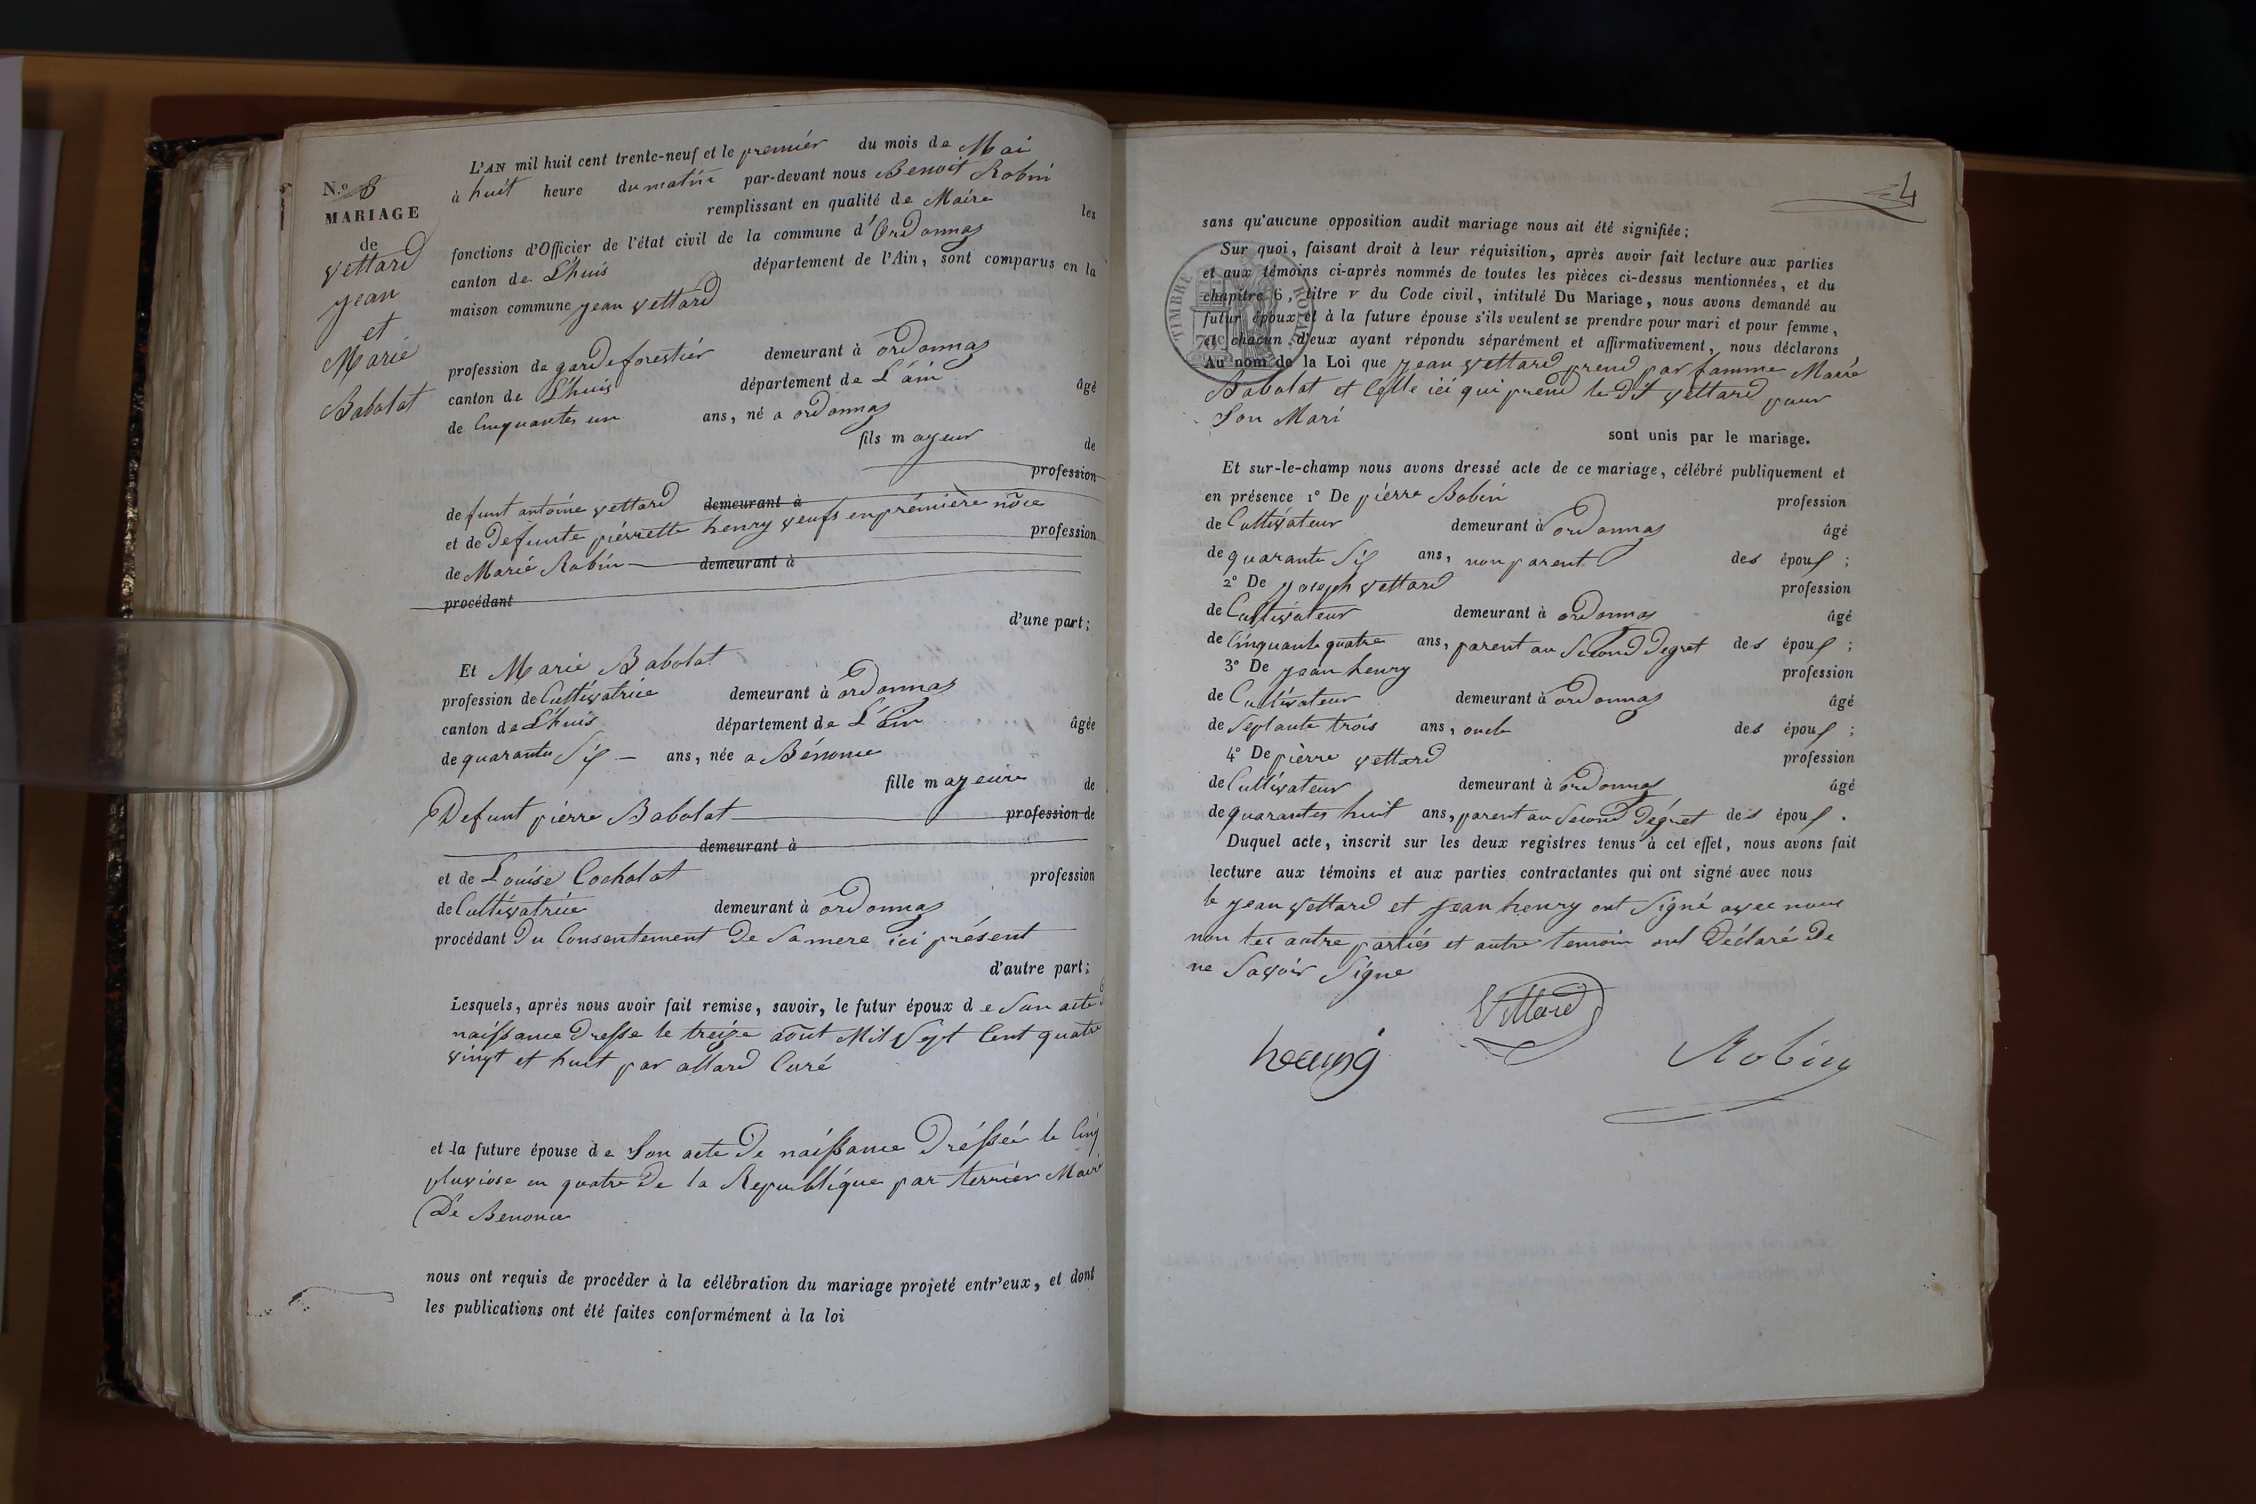 L'AN mil huit cent trente-neuf et le premiér du mois de Mai
N.º 8
à huit heure du matin par-devant nous Benoit Robin
MARIAGE
remplissant en qualité de Maire les
de
fonctions d'Officier de l'état civil de la commune d'Ordonnas
vettard
canton de L'huis département de l'Ain, sont comparus en la
jean
maison commune jean vettard
et
Marie
profession de garde forestiér demeurant à ordonnas
canton de L'huis département de L'ain âgé
Babolat
de Cinquantes un ans, né a ordonnas
fils mayeur de
profession
de funt antoine vettard demeurant à
et de Defunte piérrette henry veufs en prémière nôce profession
de Marie Robin demeurant à
procédant
d'une part;
Et Marie Babolat
profession de Cultivatrice demeurant à ordonnas
canton de L'huis département de L'ain âgée
de quarante Six ans, née a Bénonce
fille mayeure de
Defunt pierre Babolat profession de
demeurant à
et de Louise Cochalat profession
de Cultivatrice demeurant à ordonnas
procédant Du Consentement De Samere ici présent
d'autre part;
Lesquels, après nous avoir fait remise, savoir, le futur époux de Son acte
naissance Dresse le treize août Mil Sept Cent quatre
vingt et huit par allard Curé
et la future épouse de Son acte De naissance Dréssée le Cinq
pluviose en quatre De la Republíque par terriér Maire
De Benonce
nous ont requis de procéder à la célébration du mariage projeté entr'eux, et dont
les publications ont été faites conformément à la loi
4
sans qu'aucune opposition audit mariage nous ait été signifiée;
Sur quoi, faisant droit à leur réquisition, après avoir fait lecture aux parties
et aux témoins ci-après nommés de toutes les pièces ci-dessus mentionnées, et du
chapitre 6, titre v du Code civil, intitulé Du Mariage, nous avons demandé au
futur époux et à la future épouse s'ils veulent se prendre pour mari et pour femme,
et chacun d'eux ayant répondu séparément et affirmativement, nous déclarons
TIMBRE ROYAL
70c
Au nom de la Loi que jean vettard prend par famme Marie
Babolat et Celle ici qui prend le Dt vettard pour
Son Mari
sont unis par le mariage.
Et sur-le-champ nous avons dressé acte de ce mariage, célébré publiquement et
en présence 1º De piérre Bobin profession
de Cultivateur demeurant à ordonnas âgé
de quarante Six ans, non parent des époux;
2º De joseph vettard profession
de Cultivateur demeurant à ordonnas âgé
de Cinquante quatre ans, parent au Second Degret des époux;
3º De jean henry profession
de Cultivateur demeurant à ordonnas âgé
de Septante trois ans, oncle des époux;
4º De pièrre vettard profession
de Cultivateur demeurant à ordonnas âgé
de quarantes huit ans, parent au Second Dégret des époux.
Duquel acte, inscrit sur les deux registres tenus à cet effet, nous avons fait
lecture aux témoins et aux parties contractantes qui ont signé avec nous
le jean vettard et jean henry ont Signé avec nous
non les autre partiés et autre temoin ont Déclaré De
ne Savoir Signe
Vettard
henry
Robin